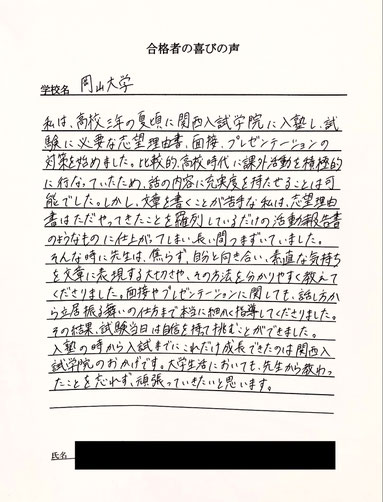 合格者の喜びの声
学校名 岡山大学
私は、高校三年の夏頃に関西入試学院に入塾し、試
験に必要な志望理由書、面接、プレゼンテーションの
対策を始めました。比較的、高校時代に課外活動を積極的
に行なっていたため、話の内容に充実度を持たせることは可
能でした。しかし、文章を書くことが苦手な私は、志望理由
書はただやってきたことを羅列しているだけの活動報告書
のようなものに仕上がってしまい、長い間つまずいていました。
そんな時に先生は、焦らず、自分と向き合い、素直な気持ち
を文章に表現する大切さや、その方法を分かりやすく教えて
くださりました。面接やプレゼンテーションに関しても、話し方か
ら立居振る舞いの仕方まで本当に細かく指導してくださりました。
その結果、試験当日は自信を持って挑むことができました。
入塾の時から入試までにこれだけ成長できたのは関西入
試学院のおかげです。大学生活においても、先生から教わっ
たことを忘れず、頑張っていきたいと思います。
氏名